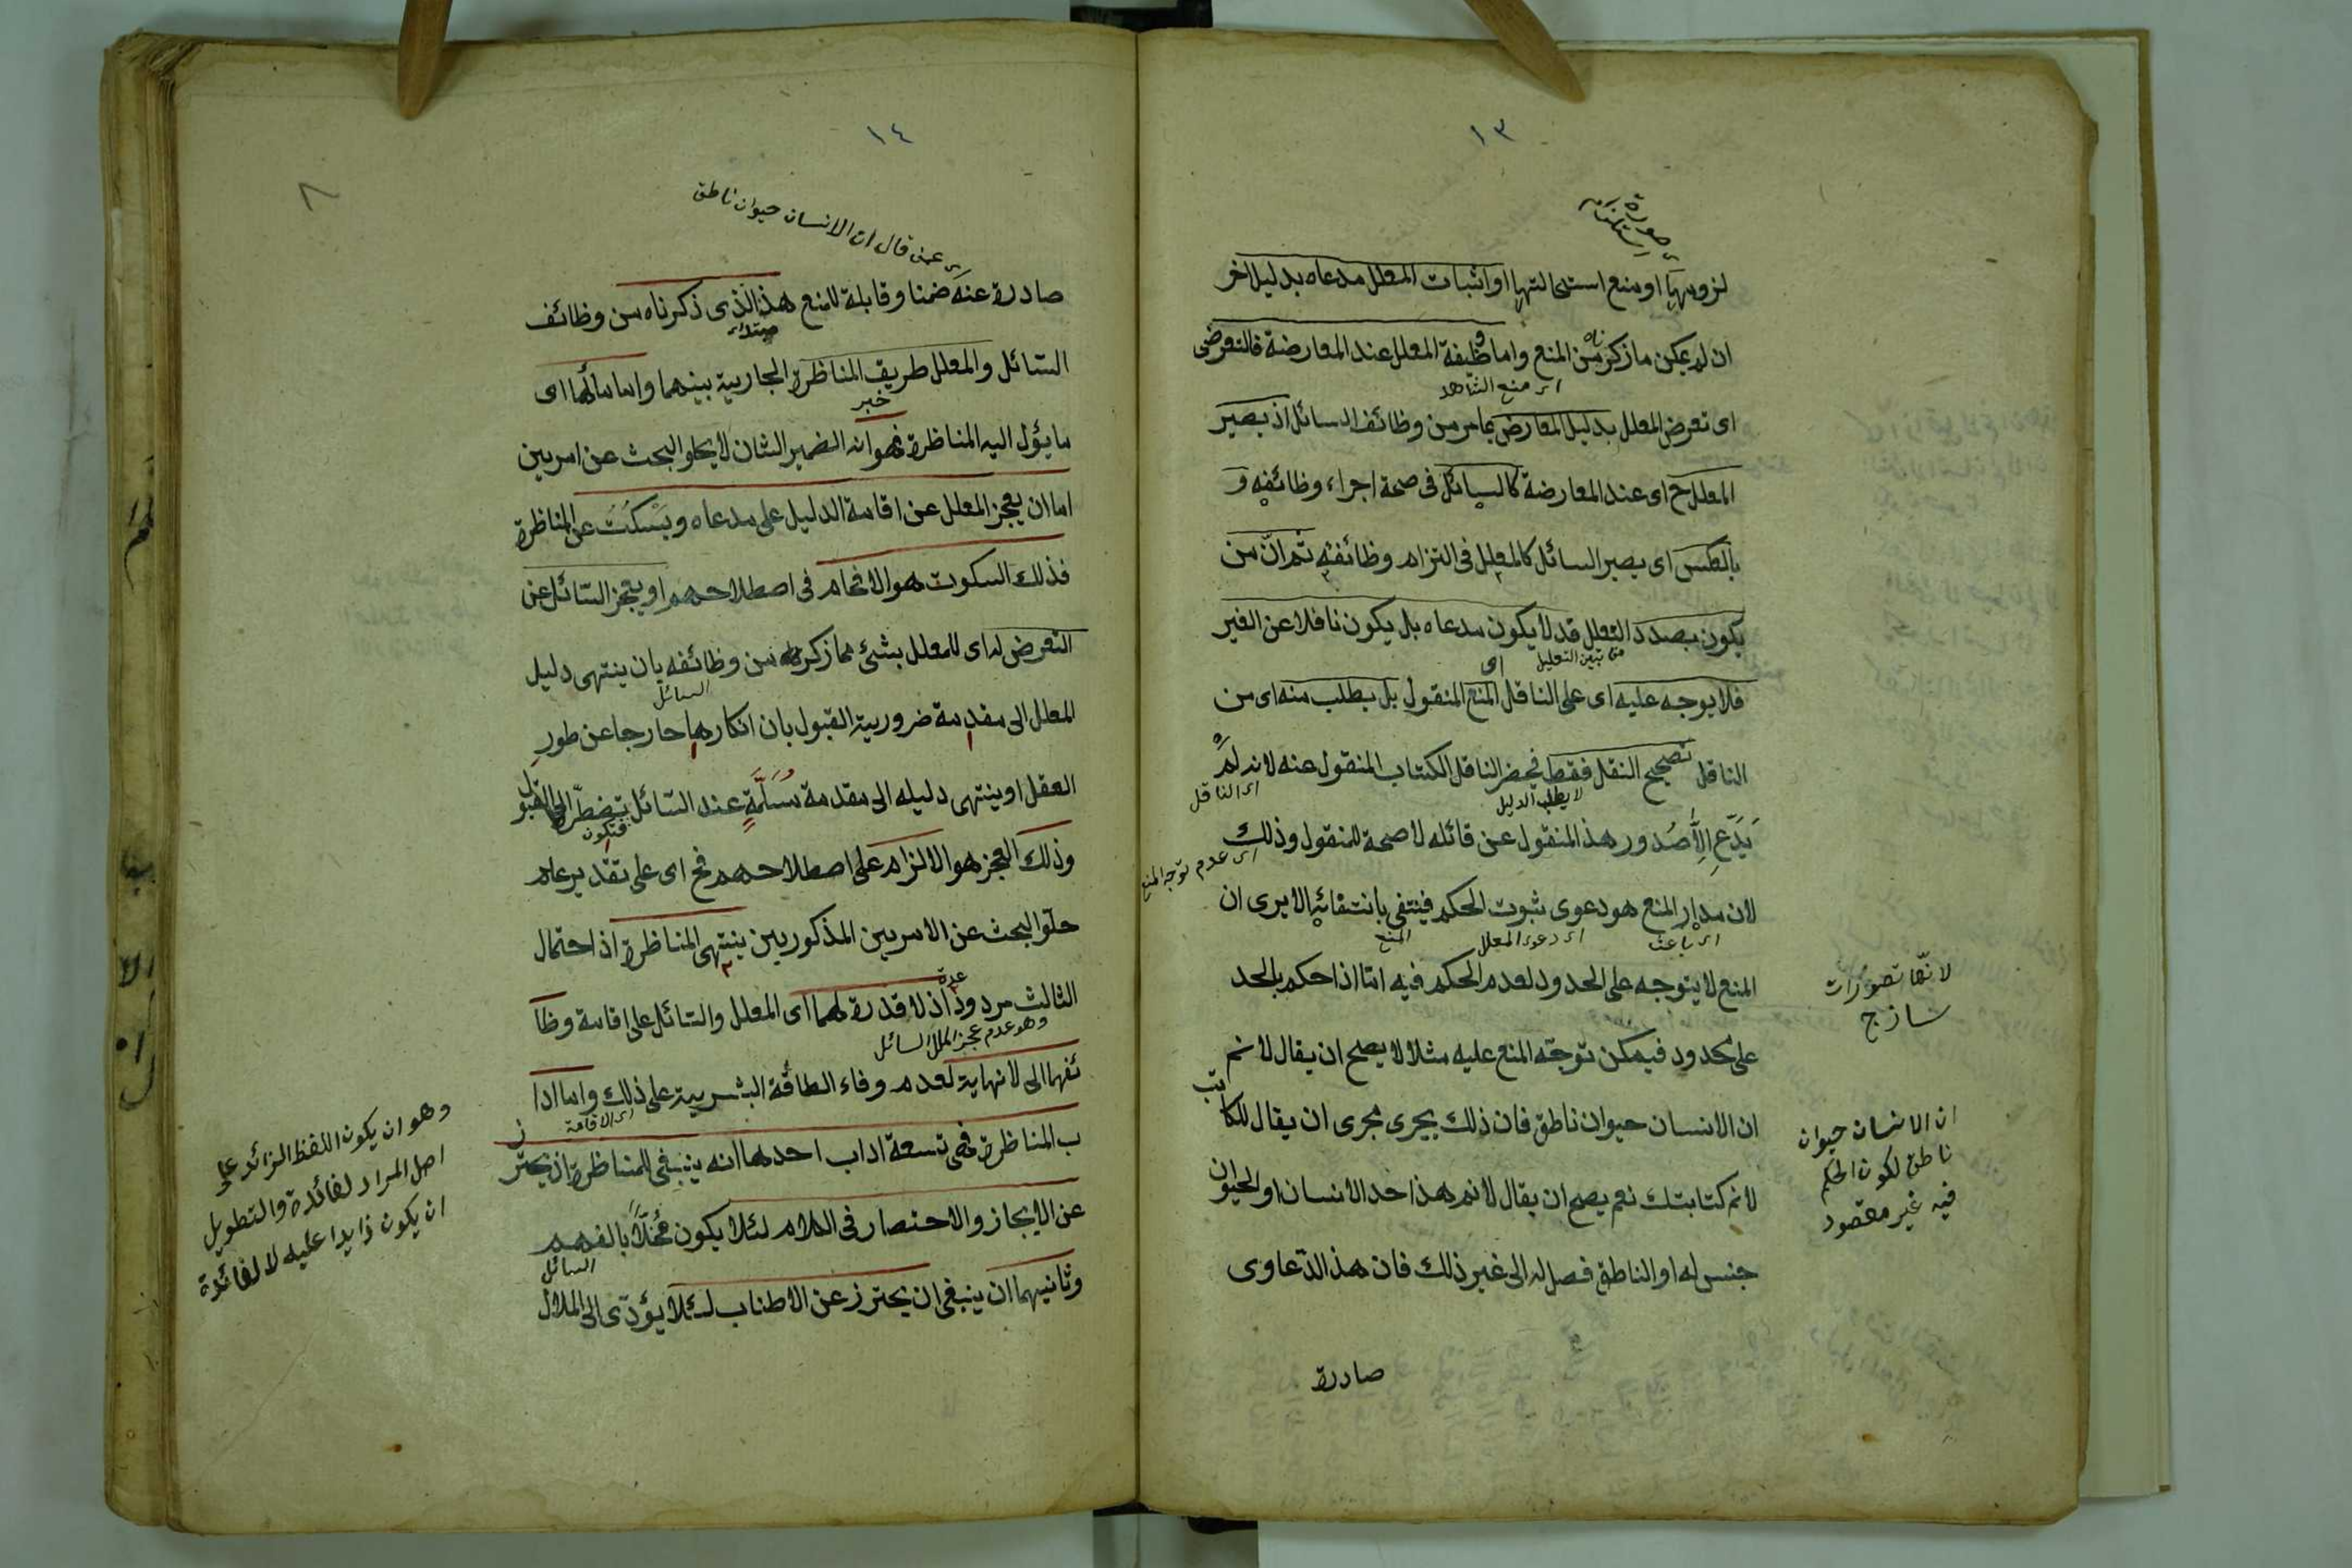 ١٣
صورة
لزومها او منع استحالتها او اثبات المعلل مدعاه بدليل اخر
ان لم يمكن ما ذكرناه من المنع واما وظيفة المعلل عند المعارضة فالتعرض
اى منع الشاهد
اى تعرض المعلل بدليل المعارض بما مر من وظائف السائل اذ يصير
المعلل ح اى عند المعارضة كالسائل فى صحة اجراء وظائفه و
بالعكس اى يصير السائل كالمعلل فى التزام وظائفه ثم ان من
يكون بصدد التعلل قد لا يكون مدعاه بل يكون ناقلا عن الغير
اى
فلا يوجه عليه اى على الناقل المنع المنقول بل يطلب منه اى من
الناقل تصحيح النقل فقط فيحضر الناقل الكتاب المنقول عنه لانه لم
لا يطلب الدليل
اى الناقل
يدّع الّا صدور هذ المنقول عن قائله لا صحة المنقول وذلك
اى عدم توجه المنع
لان مدار المنع هو دعوى ثبوت الحكم فينتفى بانتفائه الا يرى ان
اى باعث
اى دعوى المعلل
المنع
المنع لا يتوجه على الحدود لعدم الحكم فيه امّا اذا حكم بالحد
لانّها تصوّرات
ساذج
على المحدود فيمكن توجّه المنع عليه مثلا لا يصح ان يقال لا نم
ان الانسان حيوان ناطق فان ذلك يجرى مجرى ان يقال للكاتب
ان الانسان حيوان
ناطق لكون الحكم
فيه غير مقصود
لا نم كتابتك نعم يصح ان يقال لا نم هذا حد الانسان او الحيوان
جنس له او الناطق فصل له الى غير ذلك فان هذ الدّعاوى
صادرة
١٤
٨
اى عمن قال ان الانسان حيوان ناطق
صادرة عنه ضمنا وقابلة للمنع هذ الّذى ذكرناه من وظائف
مبتداء
السّائل والمعلل طريق المناظرة الجارية بينهما واما مآلها اى
خبر
ما يؤل اليه المناظرة فهو انه الضمير الشان لا يخلو البحث عن امرين
اما ان يعجز المعلل عن اقامة الدليل على مدعاه ويسكت عن المناظرة
فذلك السكوت هو الافحام فى اصطلاحهم او يعجز السّائل عن
التعرض له اى للمعلل بشئ مما ذكر من وظائفه بان ينتهى دليل
السائل
المعلل الى مقدمة ضرورية القبول بان انكارها خارجا عن طور
العقل او ينتهى دليله الى مقدمة مسلّمة عند السّائل تضطرّ الى القبول
فيكون
وذلك العجز هو الالزام على اصطلاحهم فح اى على تقدير عدم
خلو البحث عن الامرين المذكورين ينتهى المناظرة اذ احتمال
الثالث مردود اذ لا قدرة لهما اى المعلل والسّائل على اقامة وظا
وهو عدم عجز المعلل السائل
ئفهما الى لا نهاية لعدم وفاء الطاقة البشرية على ذلك واما ادا
اى الاقامة
ب المناظرة فهى تسعة اداب احدها انه ينبغى للمناظرة ان يحترز
عن الايجاز والاختصار فى الكلام لئلا يكون مخلّا بالفهم
السائل
وثانيهما ان ينبغى ان يحترز عن الاطناب لئلا يؤدّى الى الملال
وهو ان يكون اللفظ الزائد على
اصل المراد لفائدة والتطويل
ان يكون زايدا عليه لا لفائدة